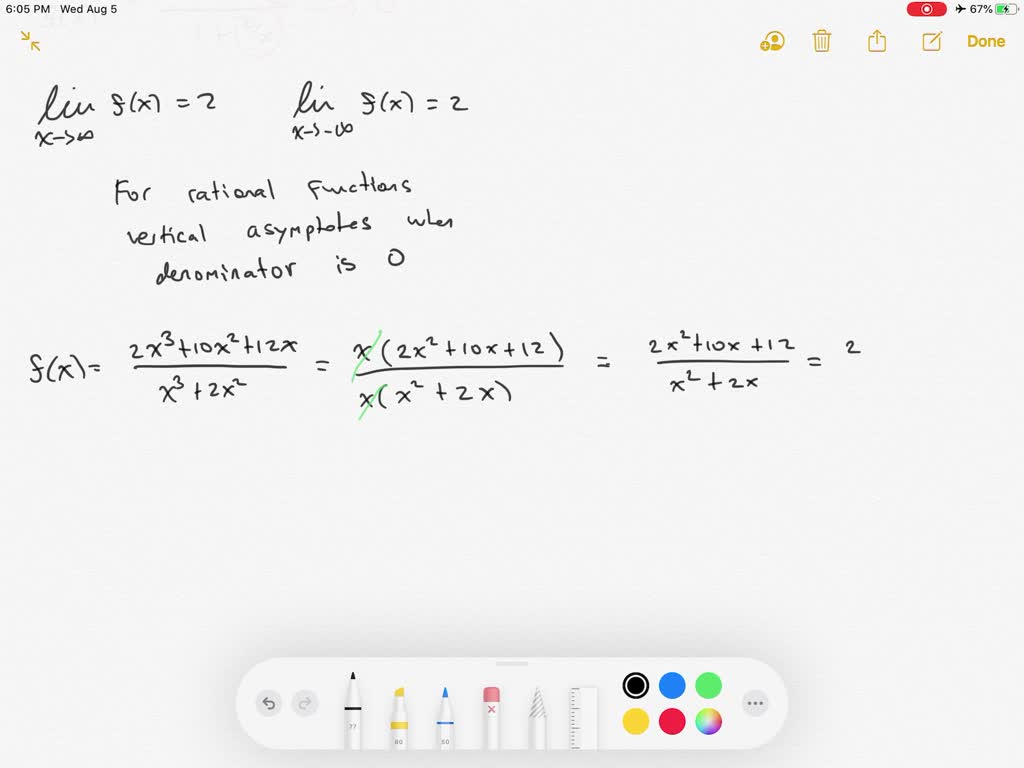 6:05 PM Wed Aug 5 67%
Done
lim x->∞ f(x) = 2 lim x->-∞ f(x) = 2
For rational functions
vertical asymptotes when
denominator is 0
f(x) = (2x³+10x²+12x)/(x³+2x²) = x(2x²+10x+12)/x(x²+2x) = (2x²+10x+12)/(x²+2x) = 2
77 80 50